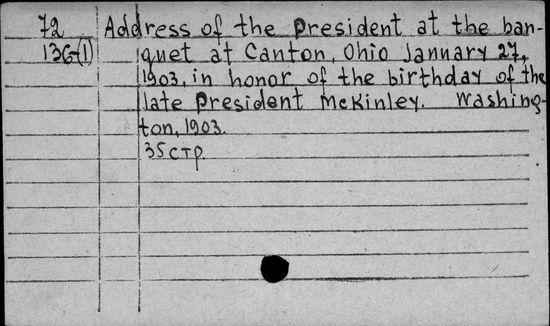 72 Address of the president at the ban-
136-(1) quet at Canton, Ohio January 27,
1903, in honor of the birthday of the
late president McKinley. Washing-
ton, 1903.
35 стр.